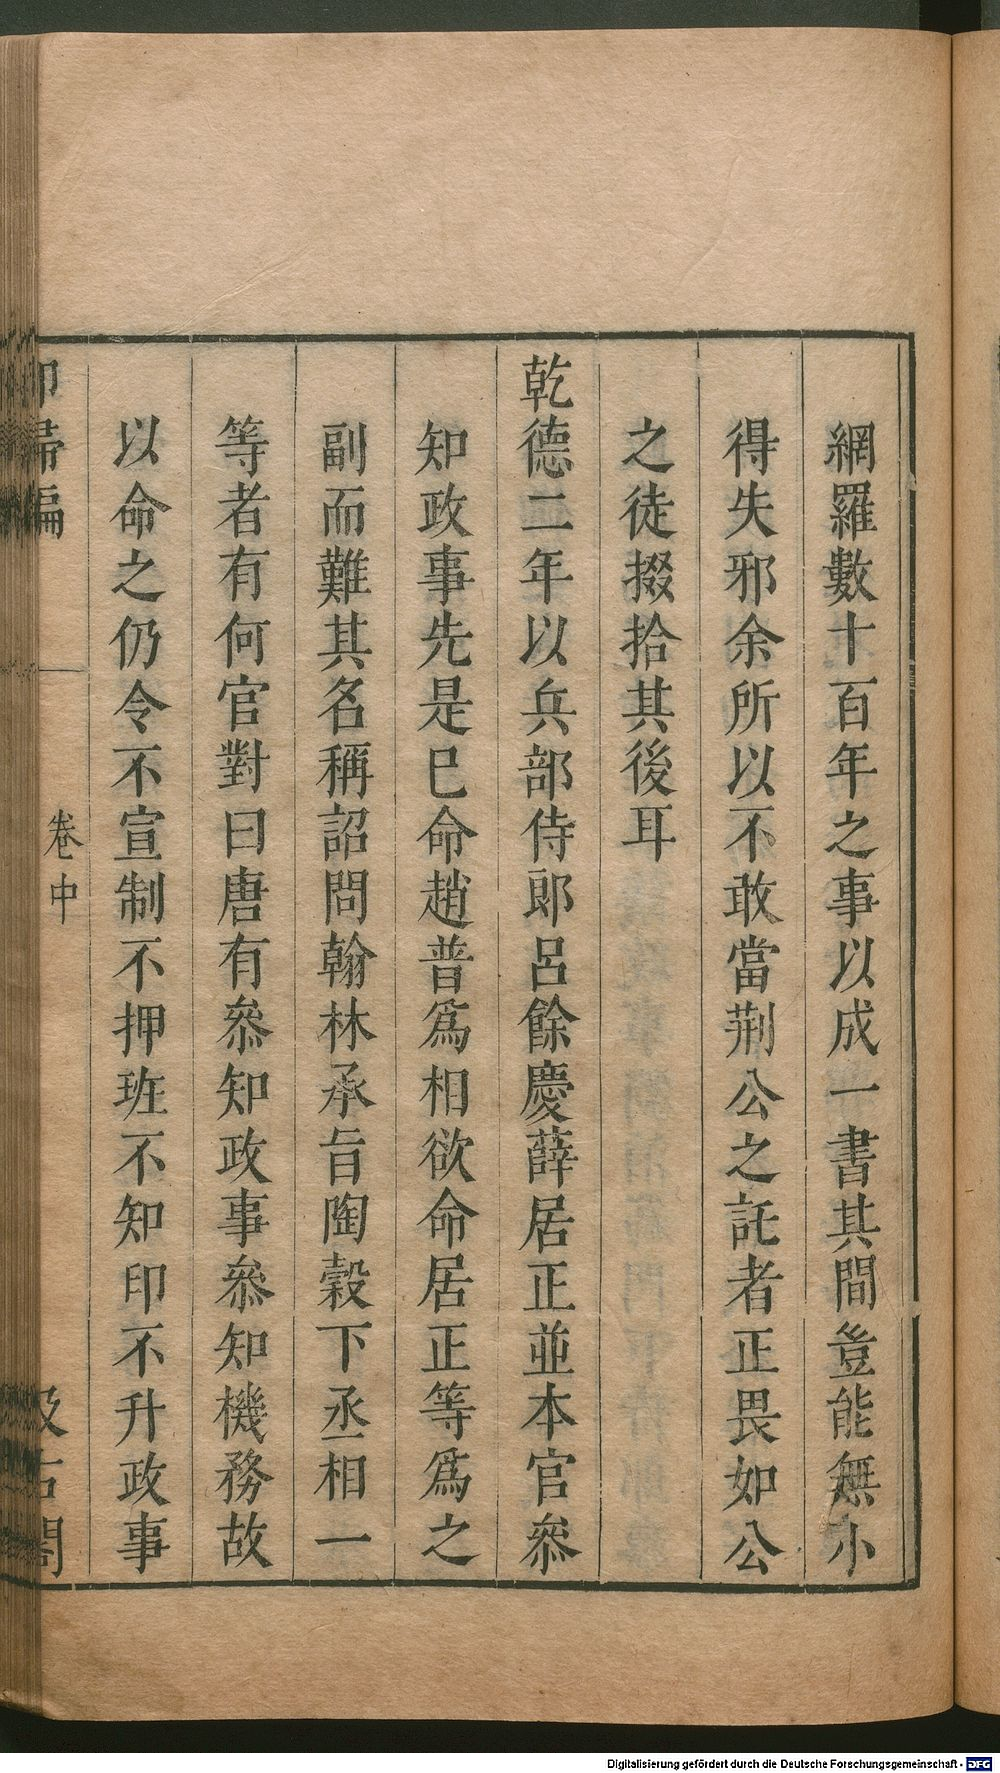 網羅數十百年之事以成一書其間豈能無小
得失邪余所以不敢當荆公之託者正畏如公
之徒掇拾其後耳
乾德二年以兵部侍郎呂餘慶薛居正並本官叅
知政事先是巳命趙普爲相欲命居正等爲之
副而難其名稱詔問翰林承旨陶穀下丞相一
等者有何官對曰唐有叅知政事叅知機務故
以命之仍令不宣制不押班不知印不升政事
卷中
Digitalisierung gefördert durch die Deutsche Forschungsgemeinschaft - DFG